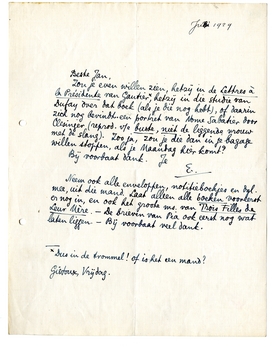 Juni 1929
Beste Jan,
Zou je even willen zien, hetzij in de Lettres à
la Présidente van Gautier, hetzij in de studie van
Dufay over dat boek (als je die nog hebt), of daarin
zich nog bevindt een portret van Mme Sabatier door
Clesinger (reprod. v/e buste, niet de liggende vrouw
met de slang). Zoo ja, zou je die dan in je bagage
willen stoppen, als je Maandag hier komt?
Bij voorbaat dank. Je
E.
Neem ook alle enveloppen, notitieboekjes en
mee, uit die mand. Laat alleen alle boeken voorloopig
er nog in, en ook het groote ms. van Trois Filles de
leur Mère. – De brieven van Pia ook eerst nog wat
laten liggen – Bij voorbaat veel dank.
* Dus in de trommel! of is het een mand?
Gistoux, Vrijdag.